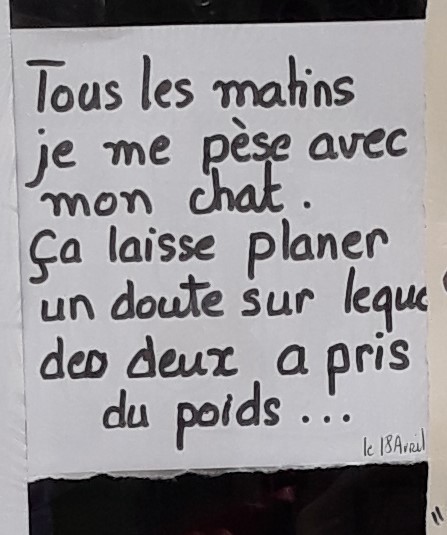 Tous les matins
je me pèse avec
mon chat.
Ça laisse planer
un doute sur leque
des deux a pris
du poids...
le 18 Avril
"